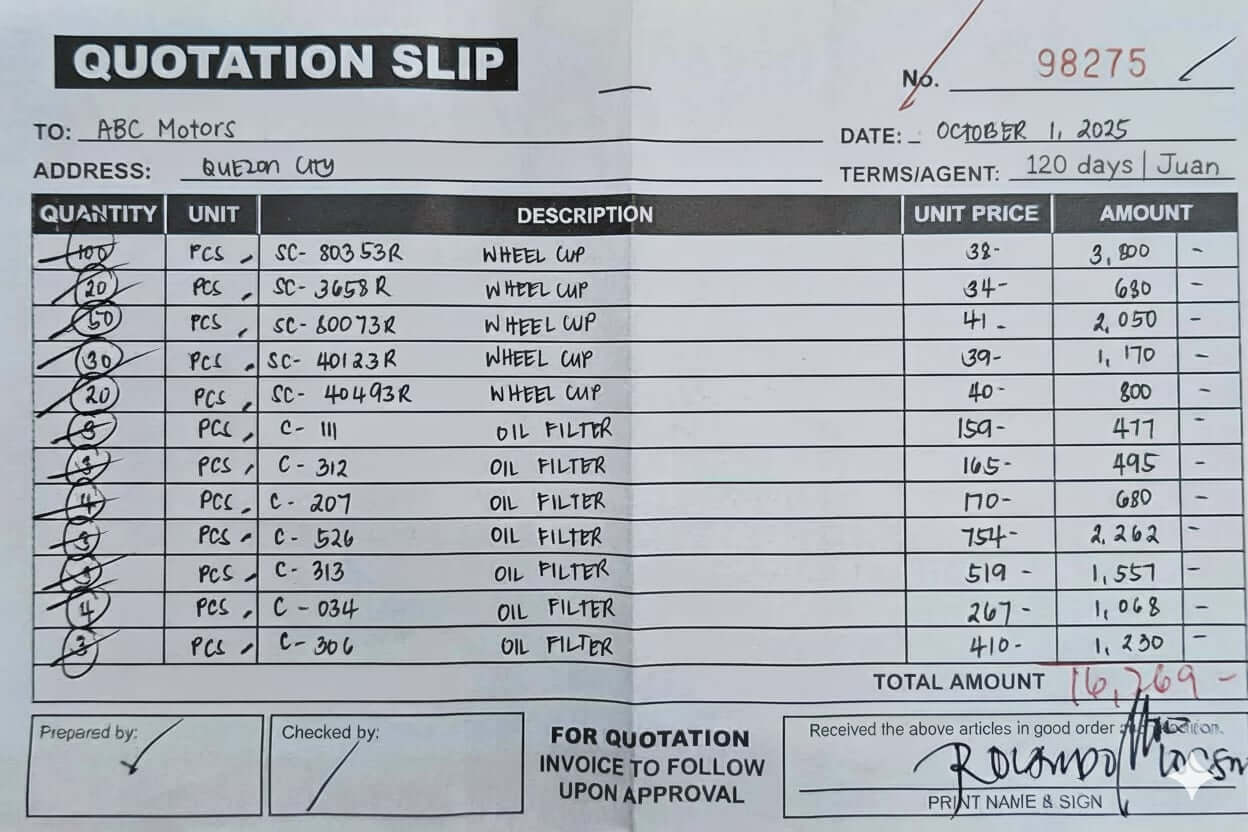 QUOTATION SLIP
No. 98275
TO: ABC Motors
DATE: OCTOBER 1, 2025
ADDRESS: QUEZON CITY
TERMS/AGENT: 120 days | Juan
QUANTITY UNIT DESCRIPTION UNIT PRICE AMOUNT
100 PCS SC- 80353R WHEEL CUP 38- 3,800 -
20 PCS SC- 3658R WHEEL CUP 34- 680 -
50 PCS SC- 80073R WHEEL CUP 41- 2,050 -
30 PCS SC- 40123R WHEEL CUP 39- 1,170 -
20 PCS SC- 40493R WHEEL CUP 40- 800 -
3 PCS C- 111 OIL FILTER 159- 477 -
3 PCS C- 312 OIL FILTER 165- 495 -
4 PCS C- 207 OIL FILTER 170- 680 -
3 PCS C- 526 OIL FILTER 754- 2,262 -
3 PCS C- 313 OIL FILTER 519- 1,557 -
4 PCS C- 034 OIL FILTER 267- 1,068 -
3 PCS C- 306 OIL FILTER 410- 1,230 -
TOTAL AMOUNT 16,269 -
Prepared by:
Checked by:
FOR QUOTATION
INVOICE TO FOLLOW
UPON APPROVAL
Received the above articles in good order
ROLANDO
PRINT NAME & SIGN